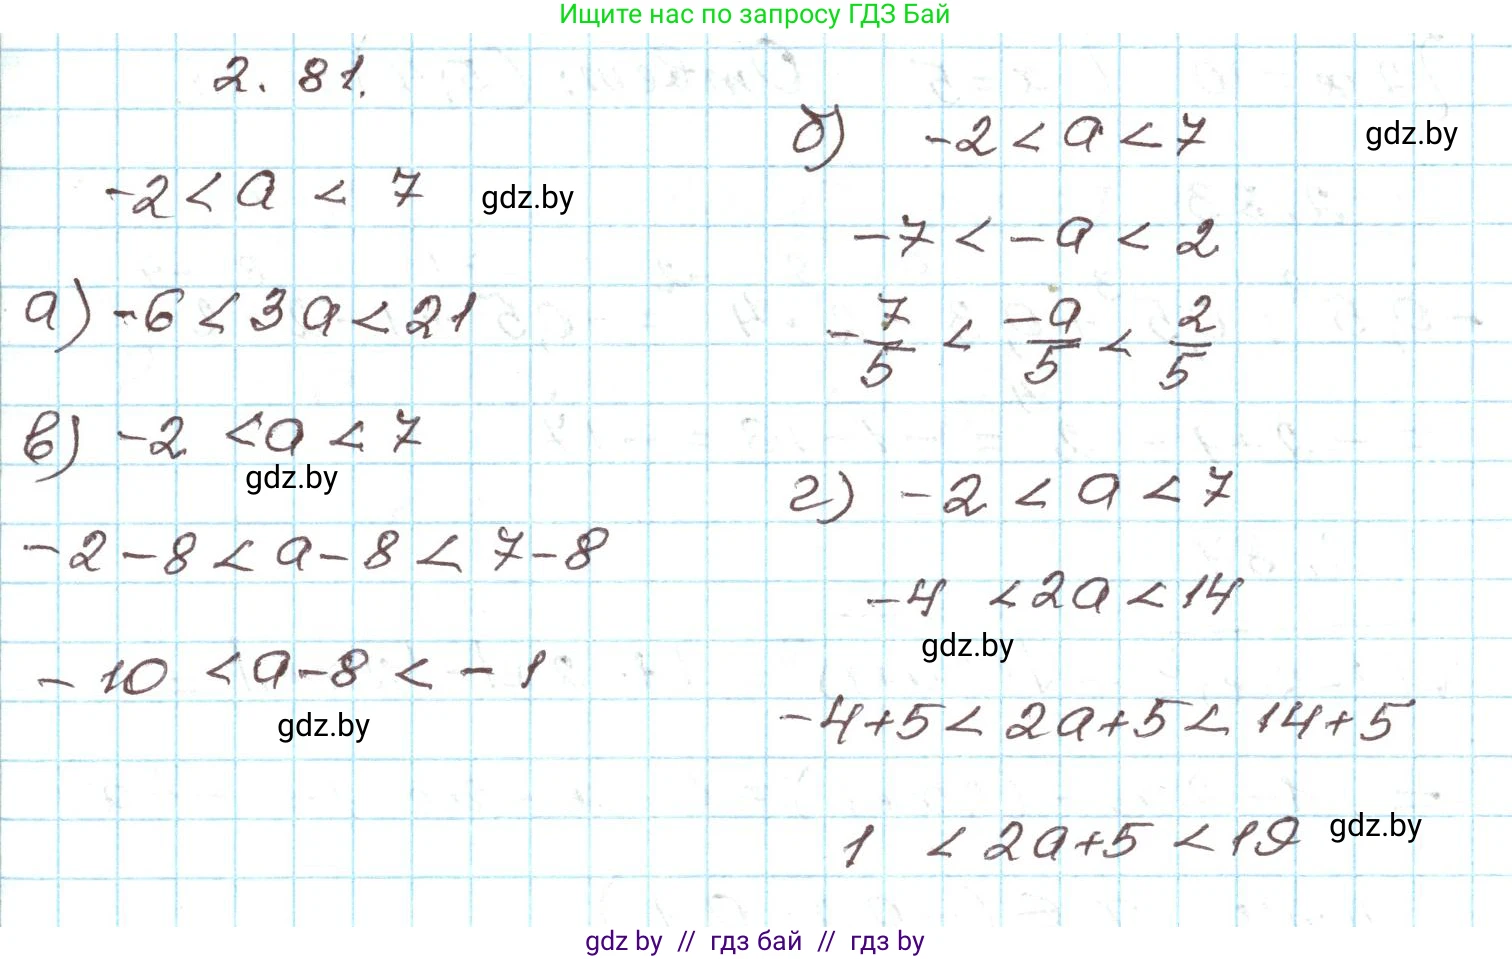 Ищите нас по запросу ГДЗ Бай
2. 81.
-2 < a < 7
gdz.by
а) -6 < 3a < 21
в) -2 < a < 7
gdz.by
-2-8 < a-8 < 7-8
-10 < a-8 < -1
gdz.by
б) -2 < a < 7
gdz.by
-7 < -a < 2
-7/5 < -a/5 < 2/5
г) -2 < a < 7
-4 < 2a < 14
gdz.by
-4+5 < 2a+5 < 14+5
1 < 2a+5 < 19
gdz.by
gdz by // гдз бай // гдз by